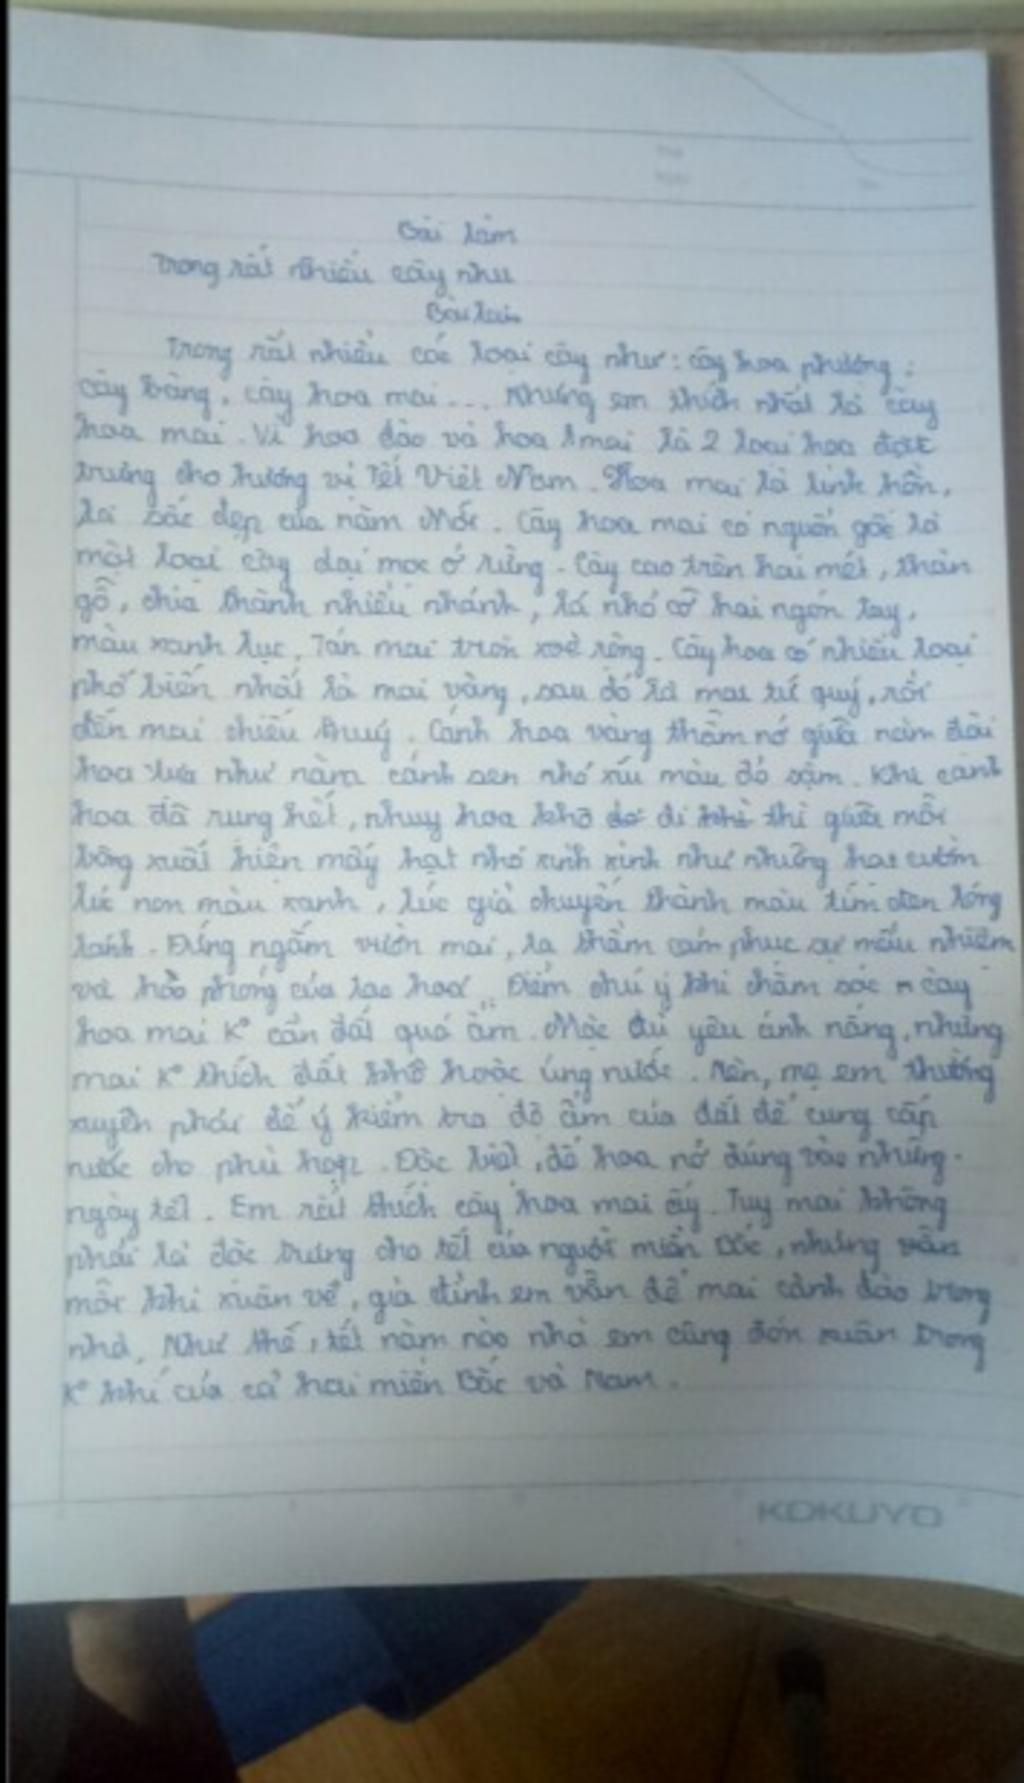 Bài làm
Trong rất nhiều cây như
Bài làm
Trong rất nhiều các loại cây như: cây hoa phượng,
cây bàng, cây hoa mai... Nhưng em thích nhất là cây
hoa mai. Vì hoa đào và hoa mai là 2 loại hoa đặc
trưng cho hương vị Tết Việt Nam. Hoa mai là linh hồn,
là sắc đẹp của năm mới. Cây hoa mai có nguồn gốc là
một loại cây dại mọc ở rừng. Cây cao trên hai mét, thân
gỗ, chia thành nhiều nhánh, lá nhỏ cỡ hai ngón tay,
màu xanh lục. Tán mai tròn xoè rộng. Cây hoa có nhiều loại
phổ biến nhất là mai vàng, sau đó là mai tứ quý, rồi
đến mai chiếu thuỷ. Cánh hoa vàng thẫm nở giữa năm đài
hoa như năm cánh sen nhỏ xíu màu đỏ sậm. Khi cánh
hoa đã rụng hết, nhuỵ hoa khô đi thì giữa mỗi
bông xuất hiện mấy hạt nhỏ xinh xinh như những hạt cườm
lúc non màu xanh, lúc già chuyển thành màu tím đen lóng
lánh. Đứng ngắm vườn mai, ta thầm cảm phục sự mầu nhiệm
và hào phóng của tạo hoá. Điểm chú ý khi chăm sóc cây
hoa mai kº cần đất quá ẩm. Mặc dù yêu ánh nắng, nhưng
mai kº thích đất khô hoặc úng nước. Nên, mẹ em thường
xuyên phải để ý kiểm tra độ ẩm của đất để cung cấp
nước cho phù hợp. Đặc biệt, để hoa nở đúng vào những
ngày tết. Em rất thích cây hoa mai ấy. Tuy mai không
phải là đặc trưng cho tết của người miền Bắc, nhưng
mỗi khi xuân về, gia đình em vẫn để mai cành đào trong
nhà. Như thế, tết năm nào nhà em cũng đón xuân trong
kº khí của cả hai miền Bắc và Nam.
KOKUYO